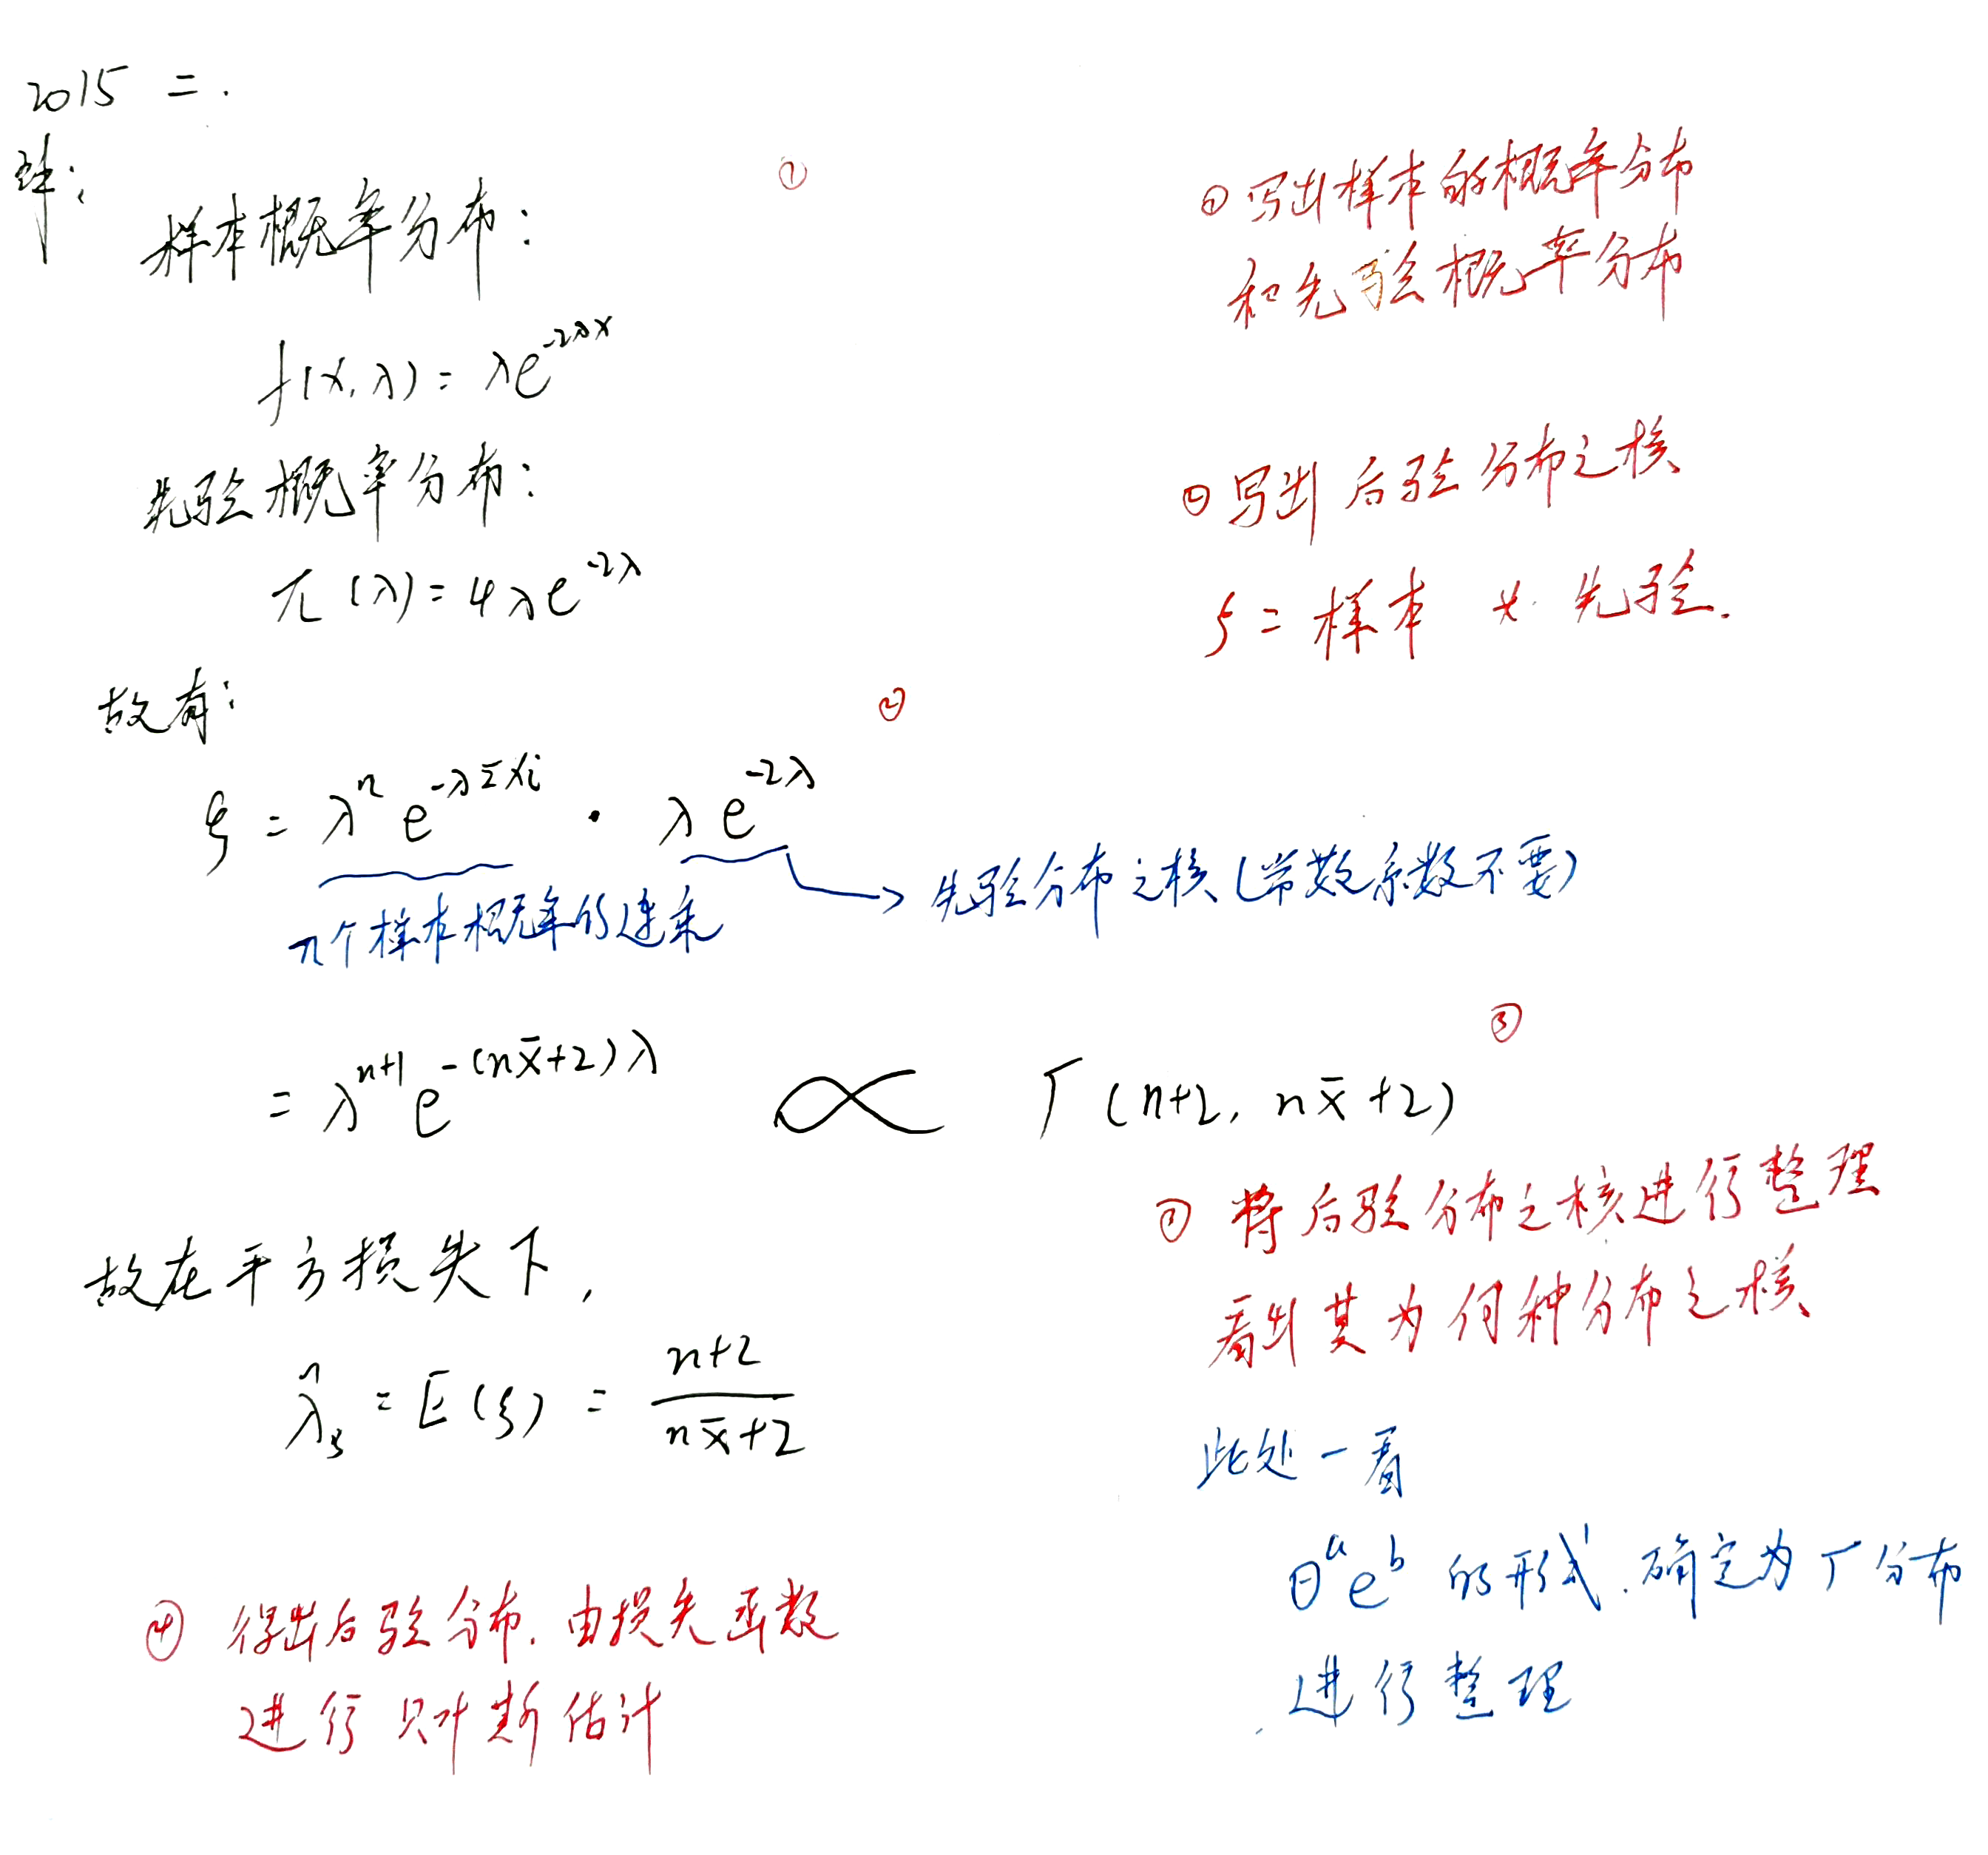 2015 二.
解:
①
样本概率分布:
f(x,λ)=λe^{-2λx}
先验概率分布:
π(λ)=4λe^{-2λ}
① 写出样本的概率分布
和先验概率分布
② 写出后验分布之核
ξ=样本 × 先验.
故有:
②
ξ = λ^n e^{-λΣxi} · λe^{-2λ}
n个样本概率的连乘
→ 先验分布之核(常数系数不要)
③
= λ^{n+1} e^{-(nx̄+2)λ} ∝ Γ(n+2, nx̄+2)
③ 将后验分布之核进行整理
看出其为何种分布之核
故在平方损失下,
λ̂_B = E(ξ) = \frac{n+2}{nx̄+2}
此处一看
θ^a e^b 的形式.确定为Γ分布
进行整理
④ 得出后验分布.由损失函数
进行贝叶斯估计